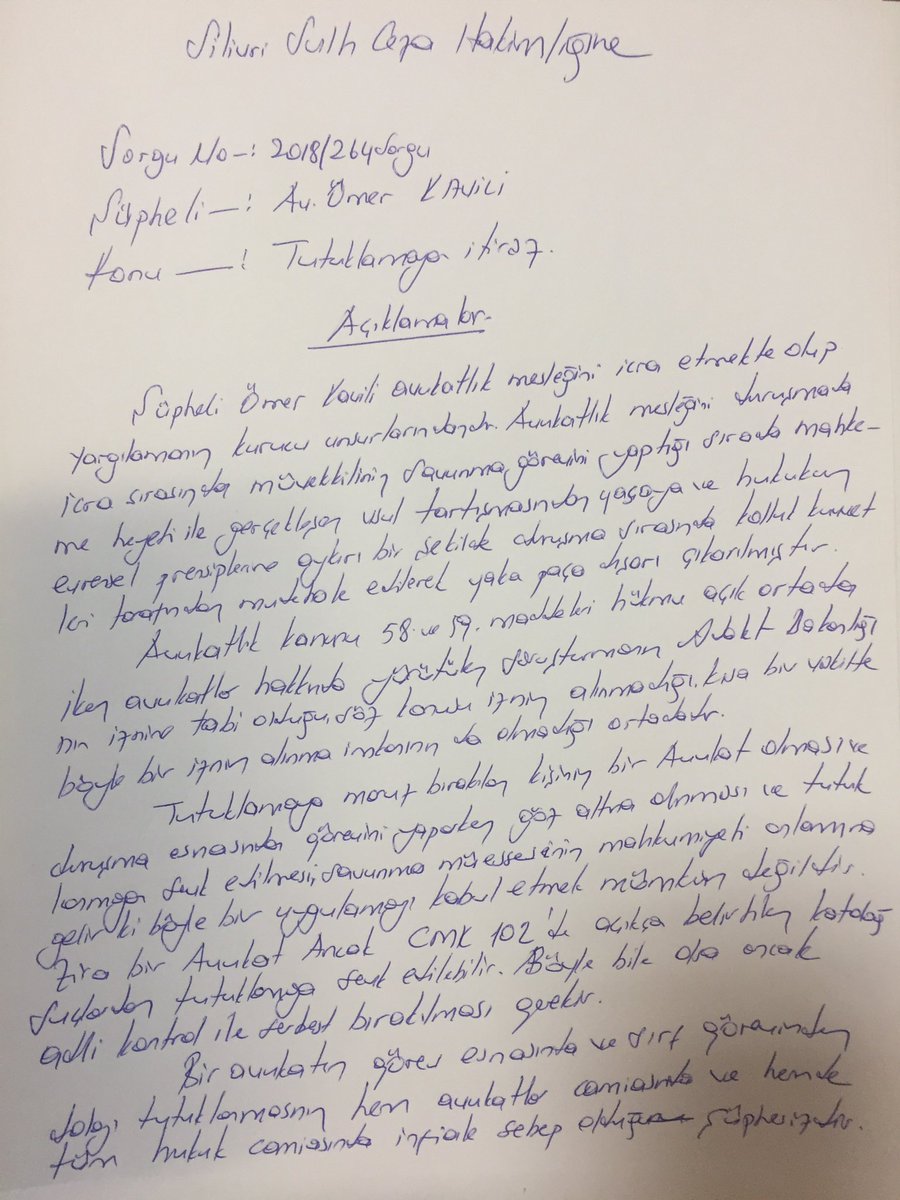 Silivri Sulh Ceza Hakimliğine
Sorgu No-: 2018/264 Sorgu
Şüpheli-: Av. Ömer KAVİLİ
Konu -: Tutuklamaya itiraz.
Açıklamalar-
Şüpheli Ömer Kavili avukatlık mesleğini icra etmekte olup
yargılamanın kurucu unsurlarındandır. Avukatlık mesleğini duruşmada
icra sırasında müvekkilinin savunma görevini yaptığı sırada mahke-
me heyeti ile gerçekleşen usul tartışmasından yasaya ve hukukun
evrensel prensiplerine aykırı bir şekilde duruşma sırasında kolluk kuvvet
leri tarafından müdahale edilerek yaka paça dışarı çıkarılmıştır.
Avukatlık kanunu 58 ve 59. maddeleri hükmü açık ortada
iken avukatlar hakkında yürütülen soruşturmanın Adalet Bakanlığı
nın iznine tabi olduğu, söz konusu iznin alınmadığı, kısa bir vakitte
böyle bir iznin alınma imkanının da olmadığı ortadadır.
Tutuklamaya maruz bırakılan kişinin bir Avukat olması ve
duruşma esnasında görevini yaparken göz altına alınması ve tutuk
lanmaya sevk edilmesi, savunma müessesinin mahkumiyeti anlamına
gelir ki böyle bir uygulamayı kabul etmek mümkün değildir.
Zira bir Avukat Ancak CMK 102'de açıkça belirtilen katalog
suçlardan tutuklamaya sevk edilebilir. Böyle bile olsa ancak
adli kontrol ile serbest bırakılması gerekir.
Bir avukatın görev esnasında ve sırf görevinden
dolayı tutuklanmasının hem avukatlar camiasında ve hemde
tüm hukuk camiasında infiale sebep olduğu şüphesizdir.